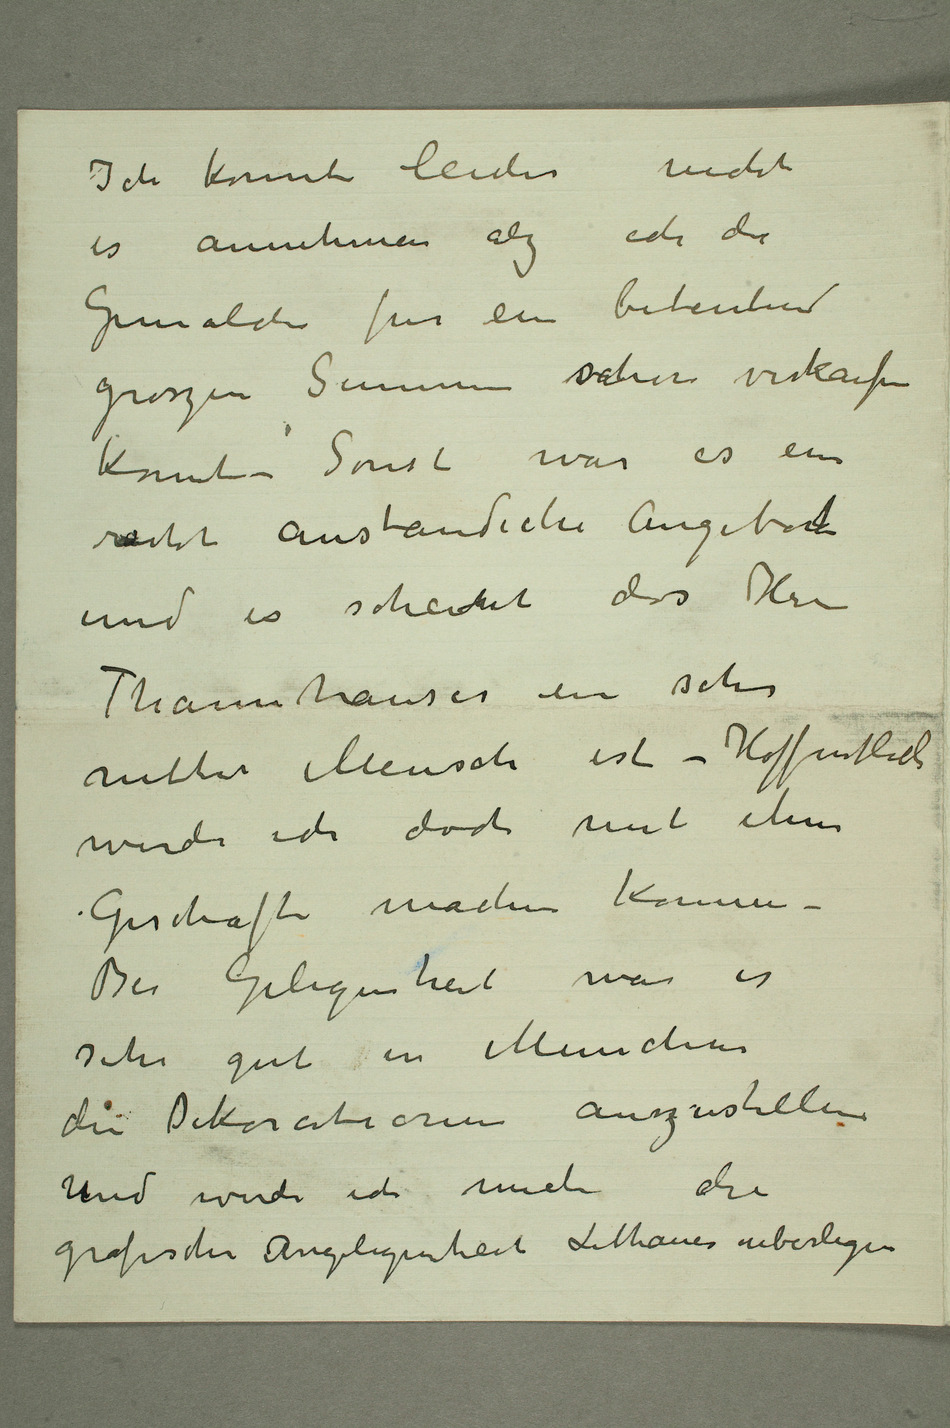 Ich konnte leider nicht
es annehmen als ich die
Gemälde für ein beteutend
groszen Summen schon verkaufen
konnte – Sonst war es ein
recht anständiche Angebot
und es scheint das Herr
Thannhauser ein sehr
netter Mensch ist – Hoffentlich
werde ich doch mit ihm
Geschäfte machen können –
Bei Gelegenheit war es
sehr gut in München
die Dekorationen auszustellen
und werde ich mich die
grafische Angelegenheit